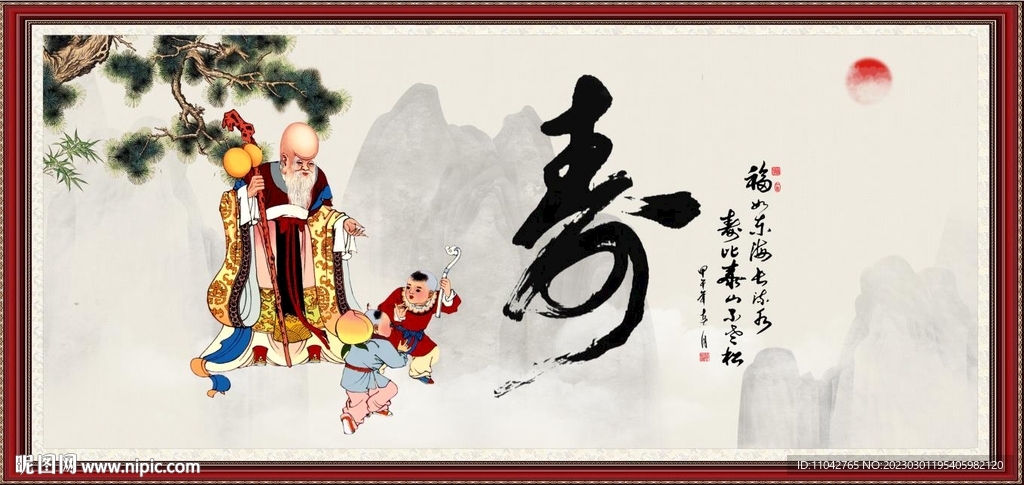 寿
福如东海长流水
寿比泰山不老松
甲午年春月
昵图网 www.nipic.com
ID:11042765 NO:20230301195405982120